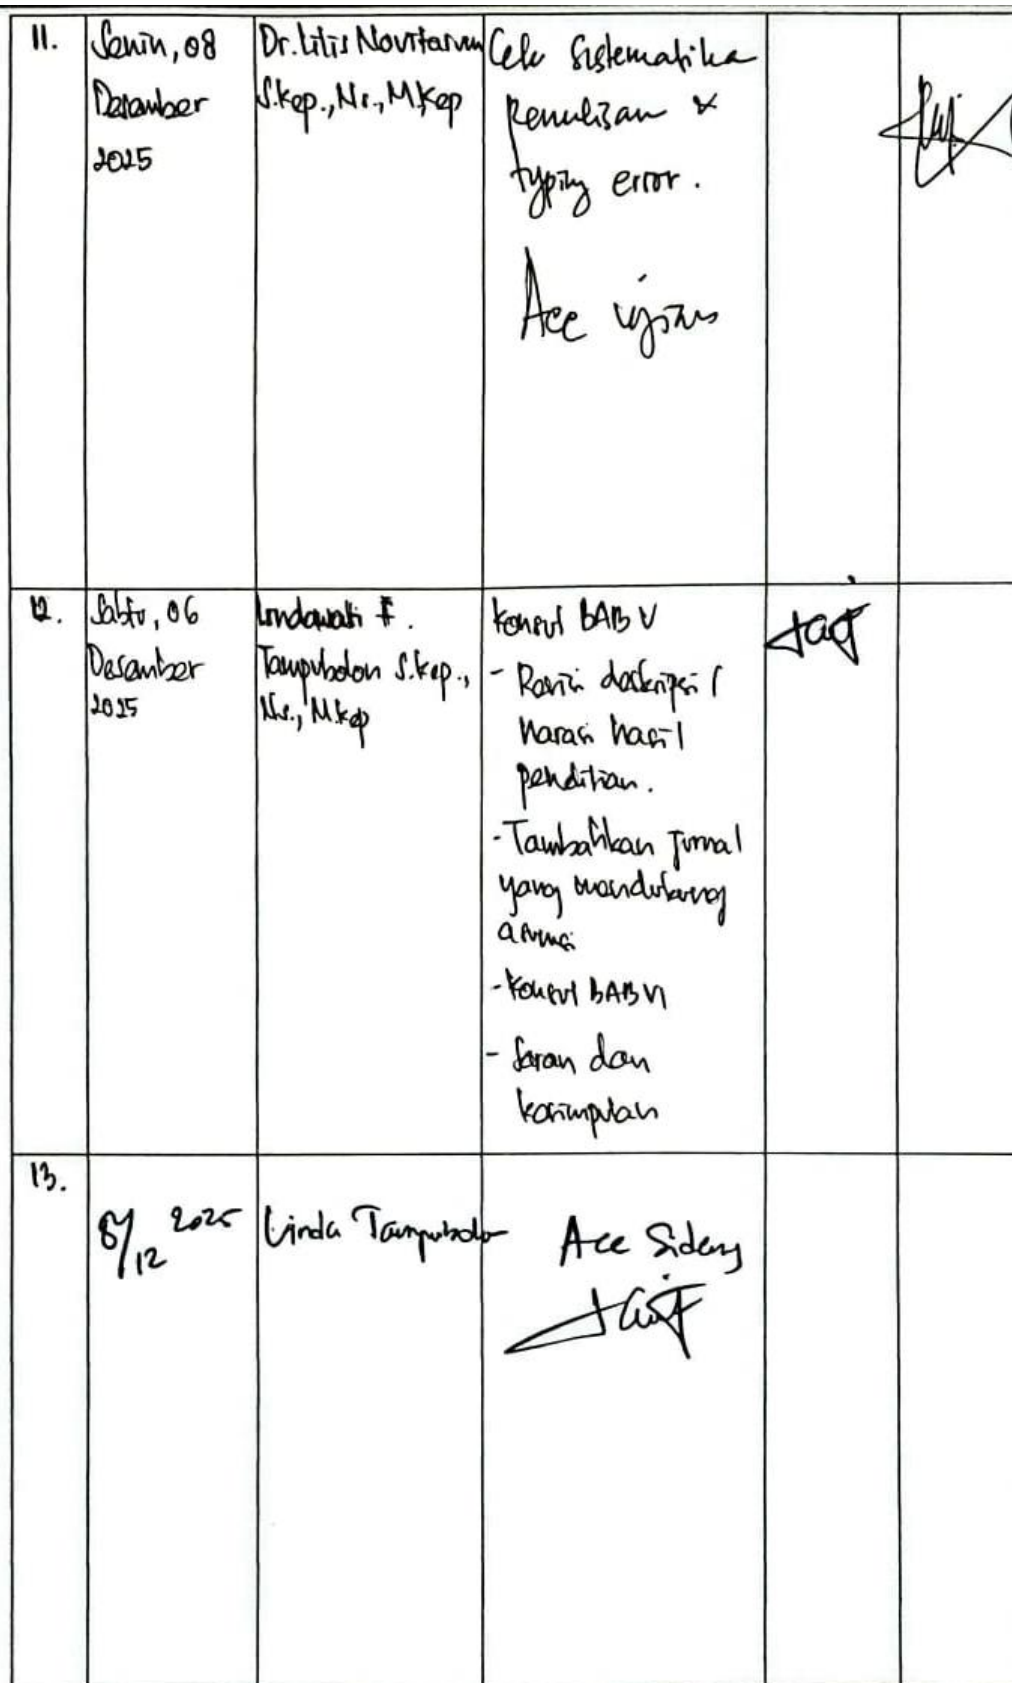 11.
Senin, 08
Desember
2025
Dr. Lilis Novitarum
S.Kep., Ns., M.Kep
Cek Sistematika
Penulisan &
typing error.
Acc ujian
12.
Sabtu, 06
Desember
2025
Lindawati F.
Tampubolon S.kep.,
Ns., M.kep
Konsul BAB V
- Revisi deskripsi /
narasi hasil
penelitian.
- Tambahkan jurnal
yang mendukung
asumsi
- Konsul BAB VI
- Saran dan
kesimpulan
13.
8/12 2025
Linda Tampubolon
Acc Sidang